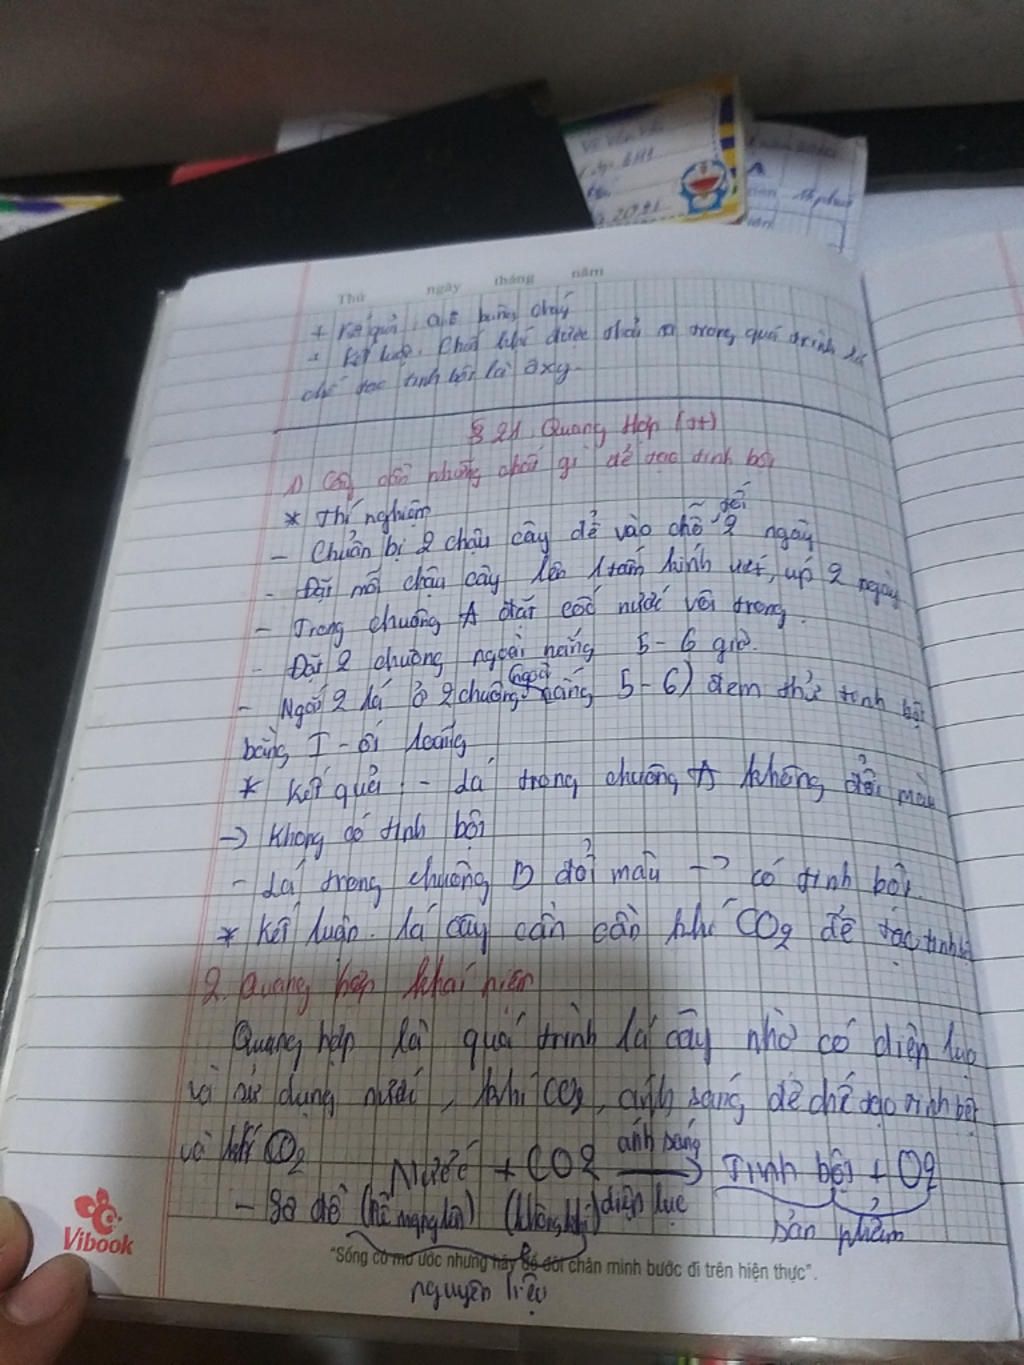 Thứ ngày tháng năm
+ Kết quả:
+ Kết luận. Chất khí được thải ra trong quá trình lá
chế tạo tinh bột là ôxy.
§ 21 Quang Hợp (tt)
1) Cây cần những chất gì để tạo tinh bột
* Thí nghiệm
tối
- Chuẩn bị 2 chậu cây để vào chỗ 2 ngày
- Đặt mỗi chậu cây lên 1 tấm kính ướt, úp 2 ngày
- Trong chuông A đặt cốc nước vôi trong.
- Đặt 2 chuông ngoài nắng 5-6 giờ.
- Ngắt 2 lá ở 2 chuông (ngoài nắng 5-6) đem thử tinh bột
bằng I-ốt loãng
* Kết quả: - Lá trong chuông A không đổi màu
-> Không có tinh bột
- Lá trong chuông B đổi màu -> có tinh bột.
* Kết luận. lá cây cần cần khí CO2 để tạo tinh bột
2. Quang hợp khái niệm
Quang hợp là quá trình lá cây nhờ có diệp lục
và sử dụng nước, khí CO2, ánh sáng để chế tạo tinh bột
và khí O2
Nước + CO2 ánh sáng Tinh bột + O2
- Sơ đồ (không khí) diệp lục
Sản phẩm
Vibook
"Sống có mơ ước nhưng hãy để đôi chân mình bước đi trên hiện thực".
nguyên liệu